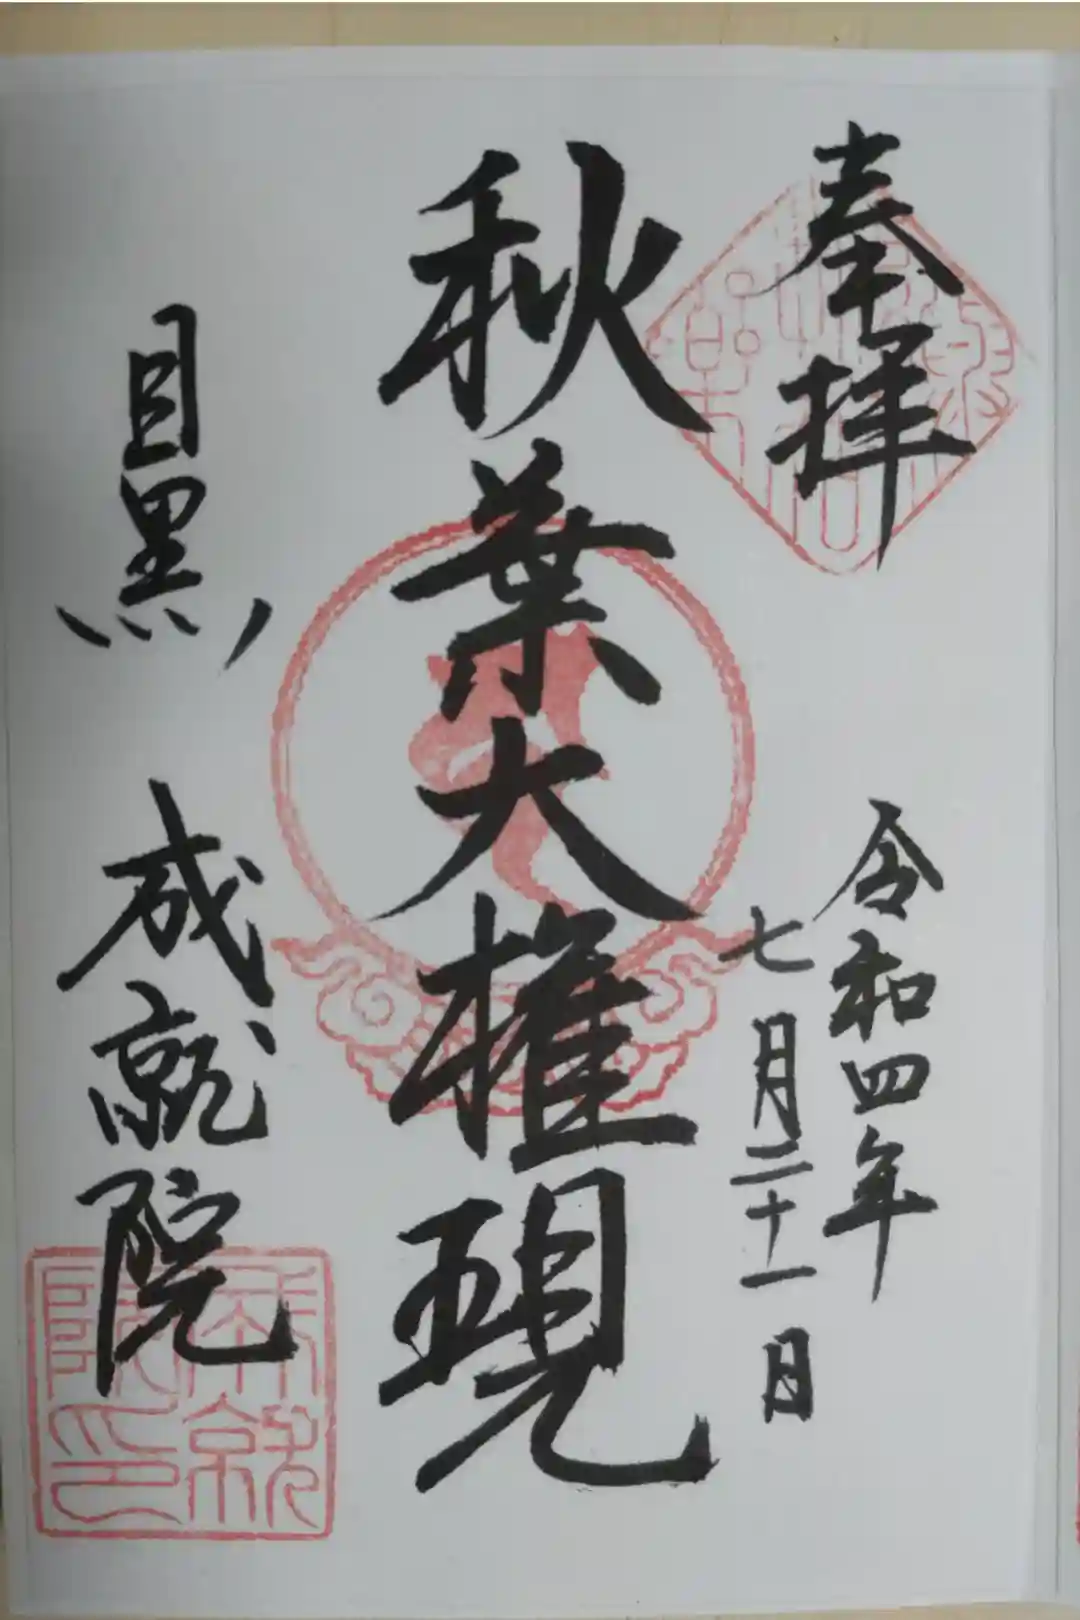 奉拝
令和四年
七月二十一日
秋葉大権現
目黒 成就院
成就
院印